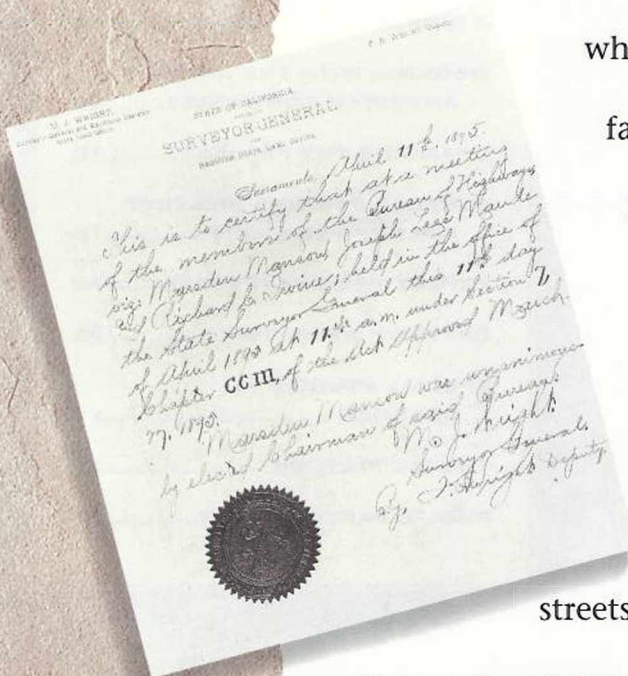 M. J. WRIGHT,
Surveyor-General and
State Land Office
STATE OF CALIFORNIA.
SURVEYOR-GENERAL
Register State Land Office
Sacramento, April 11th, 1895.
This is to certify that at a meeting
of the members of the Bureau of Highways
viz: Marsden Manson, Joseph Lees Maude
and Richard C. Irvine, held in the office of
the State Surveyor General this 11th day
of April 1895 at 11. a.m. under Section 7,
Chapter CCIII, of the Act Approved March
27, 1895.
Marsden Manson was unanimous-
ly elected Chairman of said Bureau.
M. J. Wright
Surveyor General,
By, Wright Deputy.
wh
fa
streets